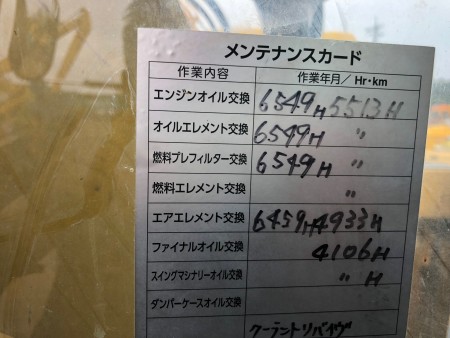 メンテナンスカード
作業内容 作業年月/Hr・km
エンジンオイル交換 6549H 5513H
オイルエレメント交換 6549H 〃
燃料プレフィルター交換 6549H 〃
燃料エレメント交換 〃
エアエレメント交換 6459H 4933H
ファイナルオイル交換 4106H
スイングマシナリーオイル交換 〃 H
ダンパーケースオイル交換
クーラントリバイヴ